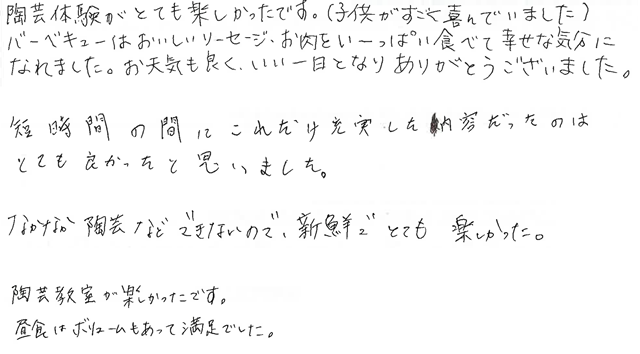 陶芸体験がとても楽しかったです。(子供がすごく喜んでいました)
バーベキューはおいしいソーセージ、お肉をい〜っぱい食べて幸せな気分に
なれました。お天気も良く、いい一日となりありがとうございました。
短時間の間にこれだけ充実した内容だったのは
とても良かったと思いました。
なかなか陶芸などできないので、新鮮でとても楽しかった。
陶芸教室が楽しかったです。
昼食はボリュームもあって満足でした。